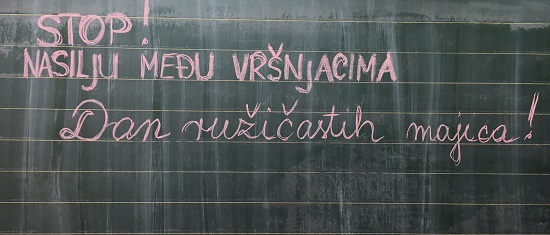 STOP!
NASILJU MEĐU VRŠNJACIMA
Dan ružičastih majica!